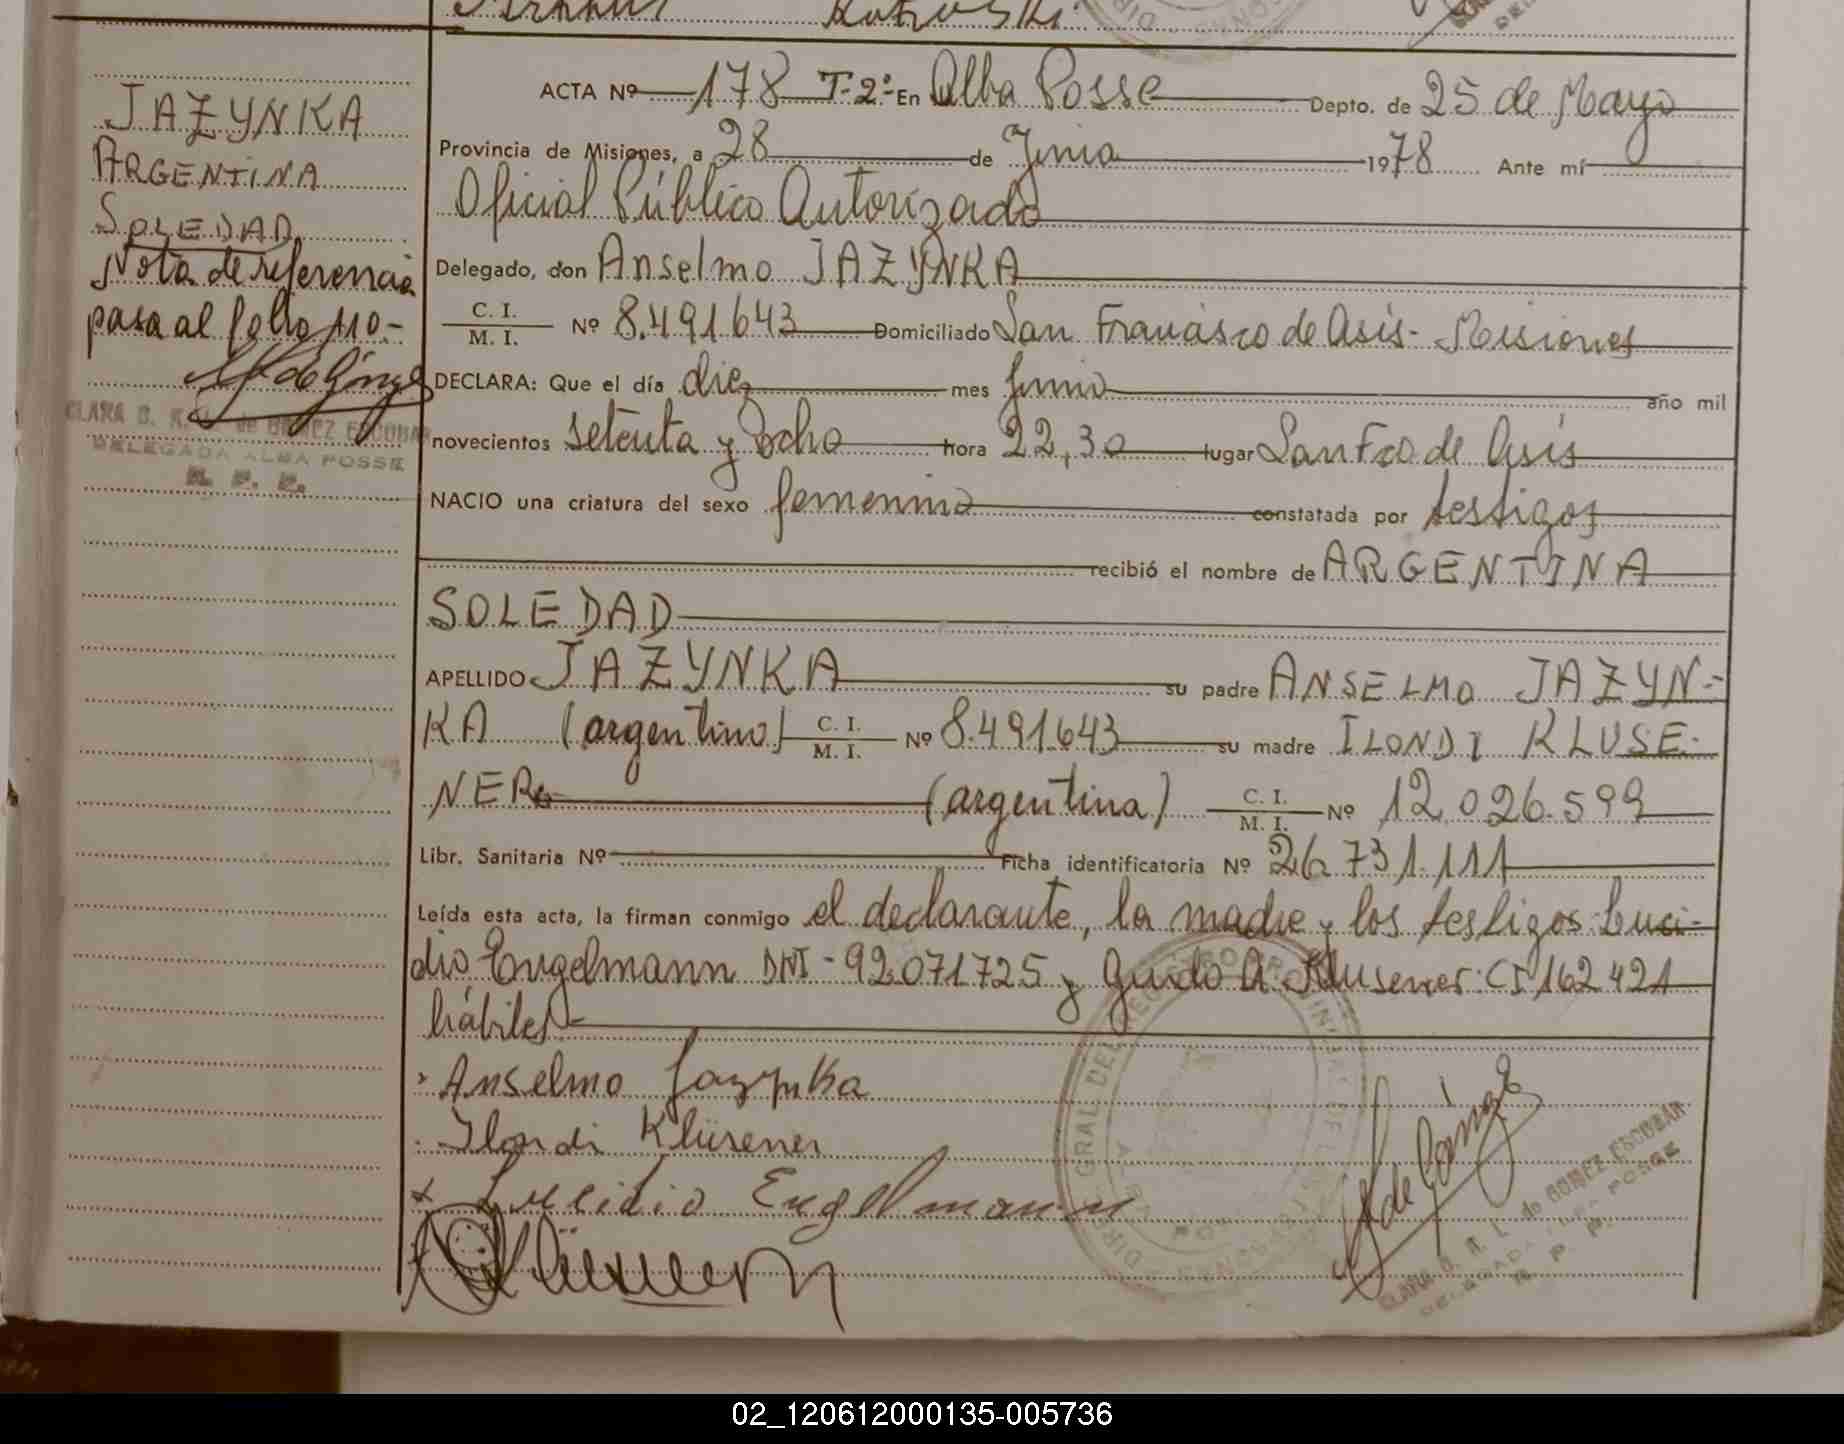 JAZYNKA
ARGENTINA
SOLEDAD
Nota de referencia
pasa al folio 110.-
DELEGADA ALBA POSSE
R. P. P.
ACTA Nº 178 T-2º- En Alba Posse Depto. de 25 de Mayo
Provincia de Misiones, a 28 de Junio 1978 Ante mí
Oficial Público Autorizado
Delegado, don Anselmo JAZYNKA
C. I.
M. I. Nº 8.491643 Domiciliado San Francisco de Asís- Misiones
DECLARA: Que el día diez mes junio año mil
novecientos setenta y ocho hora 22,30 lugar San Fco de Asís
NACIO una criatura del sexo femenino constatada por testigos
recibió el nombre de ARGENTINA
SOLEDAD
APELLIDO JAZYNKA su padre ANSELMO JAZYN-
KA (argentino) C. I. M. I. Nº 8.491.643 su madre ILONDI KLUSE-
NER (argentina) C. I. M. I. Nº 12.026.599
Libr. Sanitaria Nº Ficha identificatoria Nº 26.731.111
Leída esta acta, la firman conmigo el declarante, la madre y los testigos: Luci-
dio Engelmann DNI - 92.071725 y Guido A. Klusener: CI 162 421
hábiles-
Anselmo Jazynka
Ilondi Klüsener
x Lucidio Engelmann
de GOMEZ ESCOBAR
02_120612000135-005736